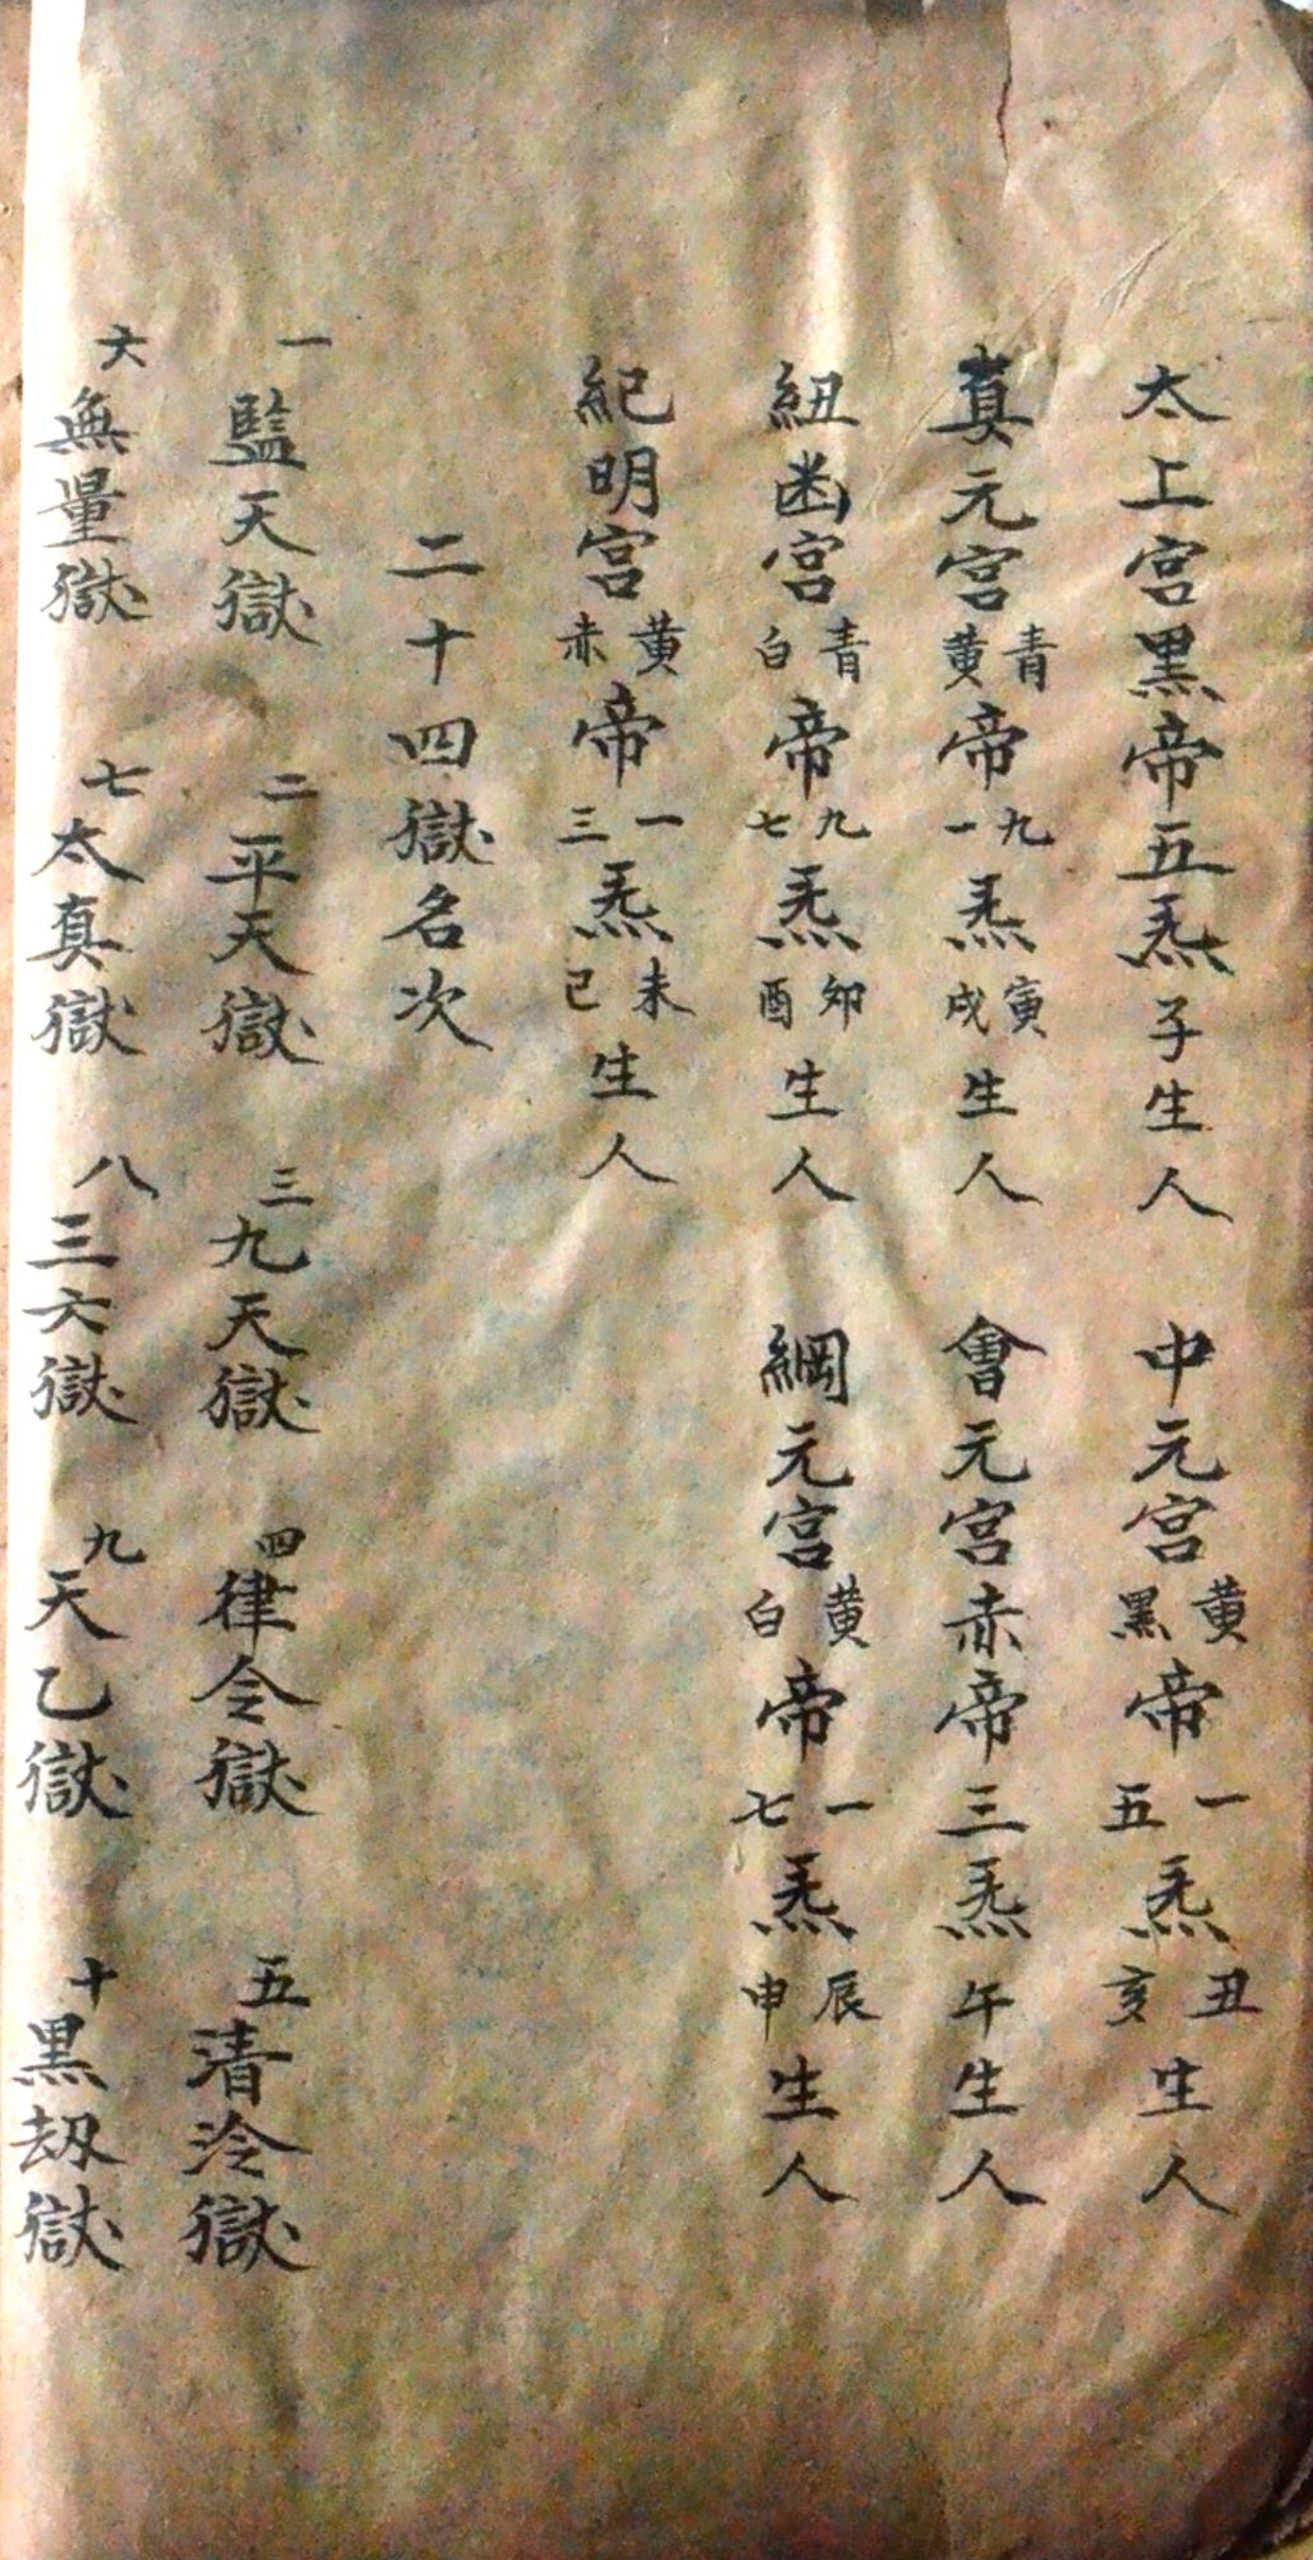 太上宮黑帝五炁子生人　中元宮黃黑帝一五炁丑亥生人
真元宮青黃帝九一炁寅戌生人　會元宮赤帝三炁午生人
紐幽宮青白帝九七炁卯酉生人　綱元宮黃白帝一七炁辰申生人
紀明宮黃赤帝一三炁未巳生人
二十四獄名次
一監天獄　二平天獄　三九天獄　四律令獄　五清泠獄
六無量獄　七太真獄　八三六獄　九天乙獄　十黑刼獄